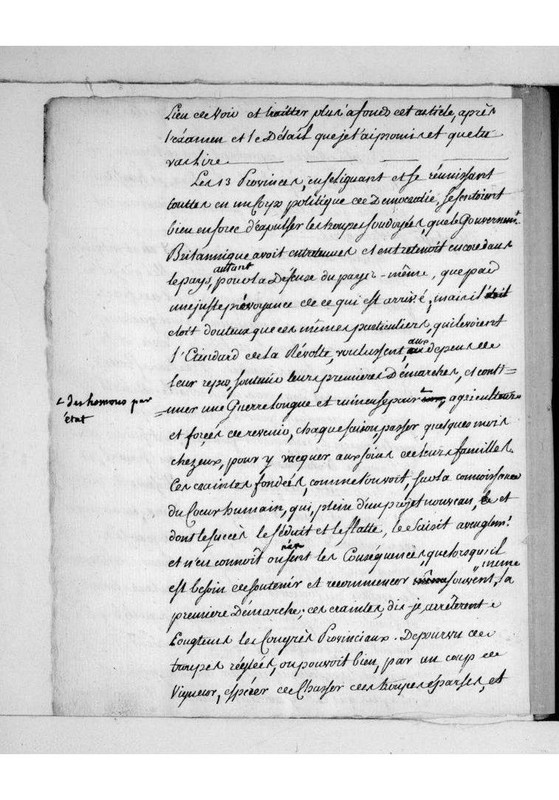 Lieu de voir et traitter plus a fond cet article, après
l'examen et le Détail que je t'ai promis et que tu
vas lire.
Les 13 Provinces, en se liguant et se réunissant
touttes en un Corps politique de Democratie, se sentoient
bien en force d'expulser les troupes soudoyées, que le Gouvernemt
Britannique avoit entretenues et entretenoit encore dans
le pays, autant pour la Défense du pays-même, que par
une juste prévoyance de ce qui est arrivé; mais il étoit
etoit douteux que ces mêmes particuliers, qui levoient
l'Etendard de la Révolte, voulussent aux depens de
leur repos, soutenir leurs premieres Démarches, et conti=
=nuer une Guerre longue et ruineuse pour agriculteurs
⌊ des hommes par
état
et forcés de revenir, chaque saison, passer quelques mois
chez eux, pour y vacquer aux soins de leurs familles.
Ces craintes fondées, comme tu vois, sur la connoissance
du Coeur humain, qui, plein d'un projet nouveau, et
dont le succès le séduit et le flatte, le saisit aveuglemt
et n'en connoit ou n'en sent les Conséquences, que lorsqu'il
est besoin de soutenir et recommencer souvent même sa
premiere Démarche; ces craintes, dis-je arrêterent
Longtems les Congrès Provinciaux. Depourvu de
troupes réglées, on pouvoit bien, par un coup de
Vigueur, espérer de Chasser des troupes éparses, et